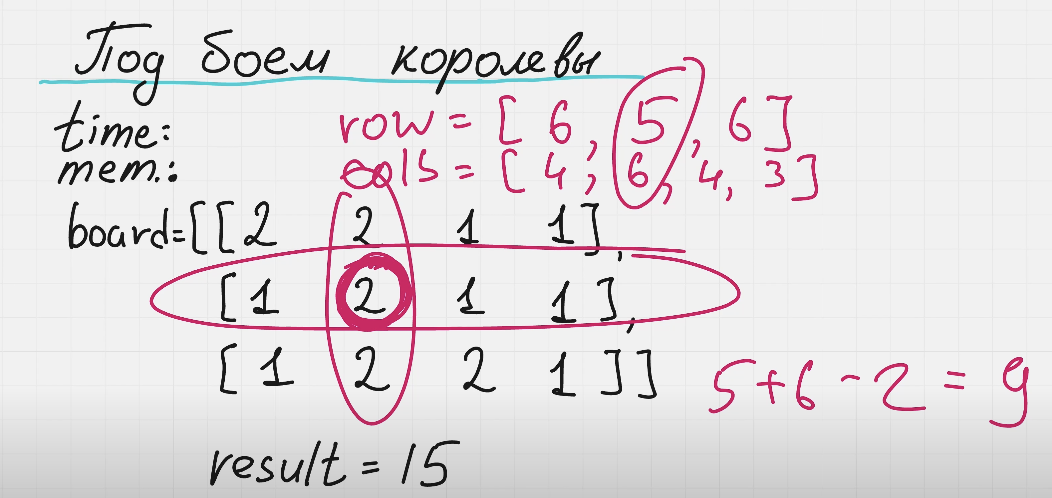 Под боем королевы
time: row = [ 6, 5, 6]
mem.: cols = [ 4, 6, 4, 3]
board=[[2 2 1 1],
[1 2 1 1],
[1 2 2 1]]
5+6-2=9
result = 15